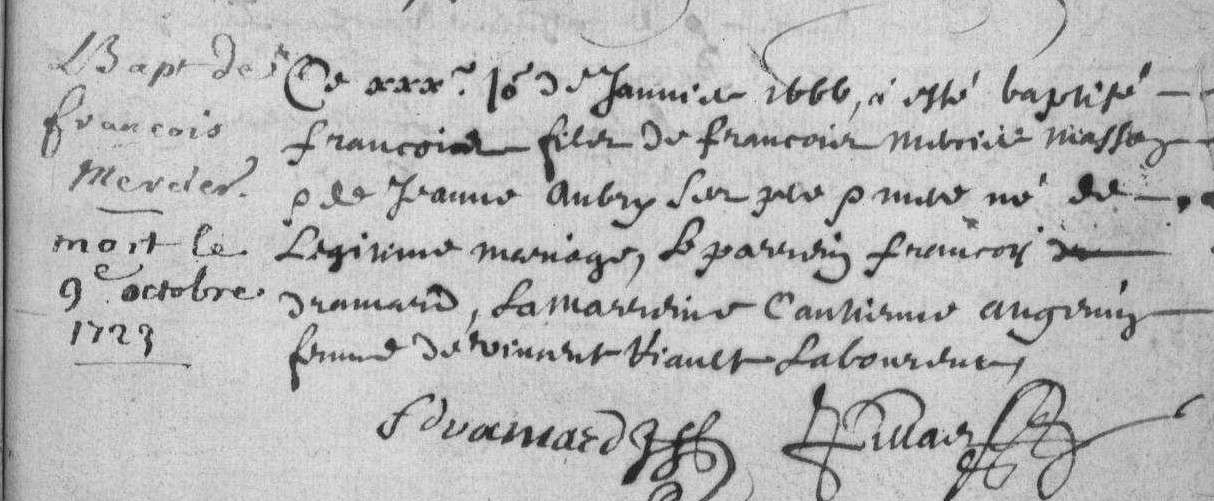 Bapt de
francois
Mercier.
mort le
9e octobre
1723
Ce xxxe Jo de Janvier 1666, a esté baptisé
francois filz de francois mercier masson
& de Jeanne Aubry ses pere & mere né de
Legitime mariage, Le parrein françois
dramard, La marreine Cantienne Angenin
femme de vincent Riault Laboureur,
f dramard